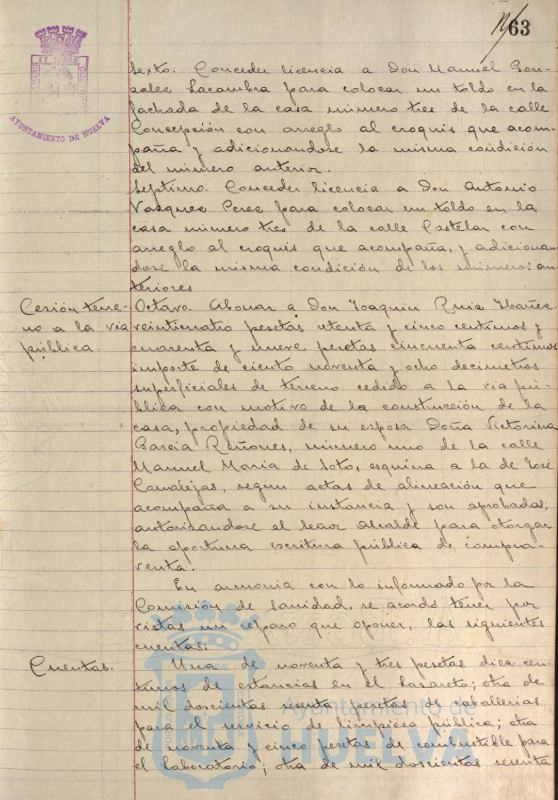 63
AYUNTAMIENTO DE HUELVA
Sexto. Conceder licencia a Don Manuel Gon-
zalez Lacambra para colocar un toldo en la
fachada de la casa número tres de la calle
Concepción con arreglo al croquis que acom-
paña y adicionandose la misma condición
del número anterior.
Septimo. Conceder licencia a Don Antonio
Vazquez Perez para colocar un toldo en la
casa número tres de la calle Castelar con
arreglo al croquis que acompaña, y adicionan-
dose la misma condición de los números an-
teriores
Cesión terre-
no a la via
pública
Octavo. Abonar a Don Joaquin Ruiz Ibañez
veinticuatro pesetas setenta y cinco centimos y
cuarenta y nueve pesetas cincuenta centimos
importe de ciento noventa y ocho decimetros
superficiales de terreno cedido a la via pú-
blica con motivo de la construcción de la
casa, propiedad de su esposa Doña Victorina
Garcia Reñones, número uno de la calle
Manuel Maria de Soto, esquina a la de José
Canalejas, segun actas de alineación que
acompaña a su instancia y son aprobadas,
autorizandose al Señor Alcalde para otorgar
la oportuna escritura pública de compra-
venta.
En armonia con lo informado por la
Comisión de Sanidad, se acordó tener por
vistas sin reparo que oponer, las siguientes
cuentas:
Cuentas.
Una de noventa y tres pesetas diez cen-
timos de estancias en el Lazareto; otra de
mil doscientas sesenta pesetas de caballerias
para el servicio de limpieza pública; otra
de noventa y cinco pesetas de combustible para
el Laboratorio; otra de mil doscientas sesenta
Ayuntamiento de
HUELVA